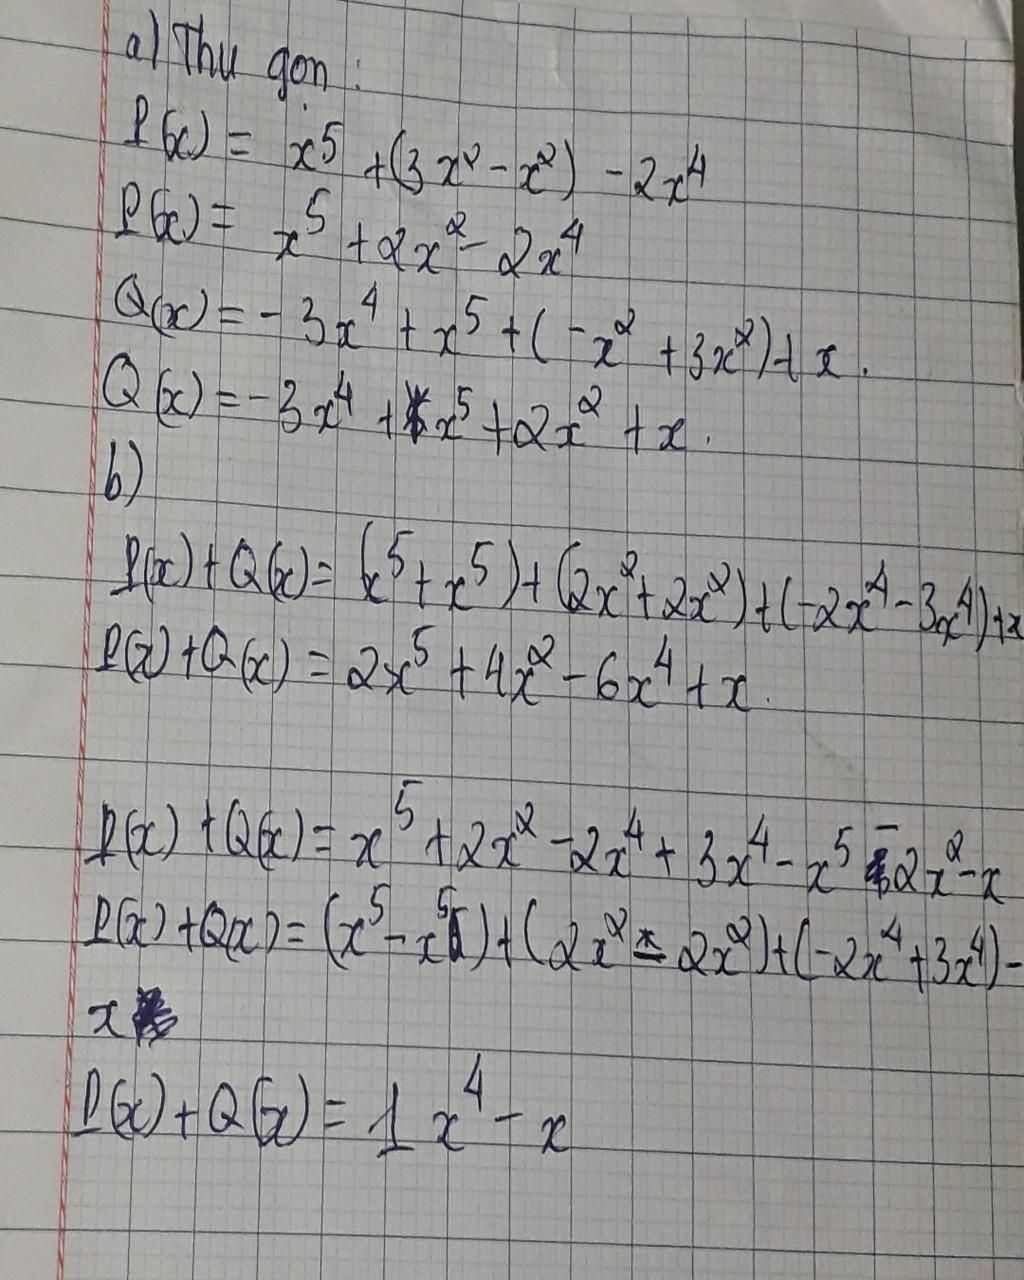 a) Thu gọn:
P(x) = x⁵ + (3x² - x²) - 2x⁴
P(x) = x⁵ + 2x² - 2x⁴
Q(x) = - 3x⁴ + x⁵ + (-x² + 3x²) + x.
Q(x) = - 3x⁴ + x⁵ + 2x² + x.
b)
P(x) + Q(x) = (x⁵ + x⁵) + (2x² + 2x²) + (-2x⁴ - 3x⁴) + x
P(x) + Q(x) = 2x⁵ + 4x² - 6x⁴ + x.
P(x) + Q(x) = x⁵ + 2x² - 2x⁴ + 3x⁴ - x⁵ - 2x² - x
P(x) + Q(x) = (x⁵ - x⁵) + (2x² - 2x²) + (-2x⁴ + 3x⁴) -
x
P(x) + Q(x) = 1x⁴ - x